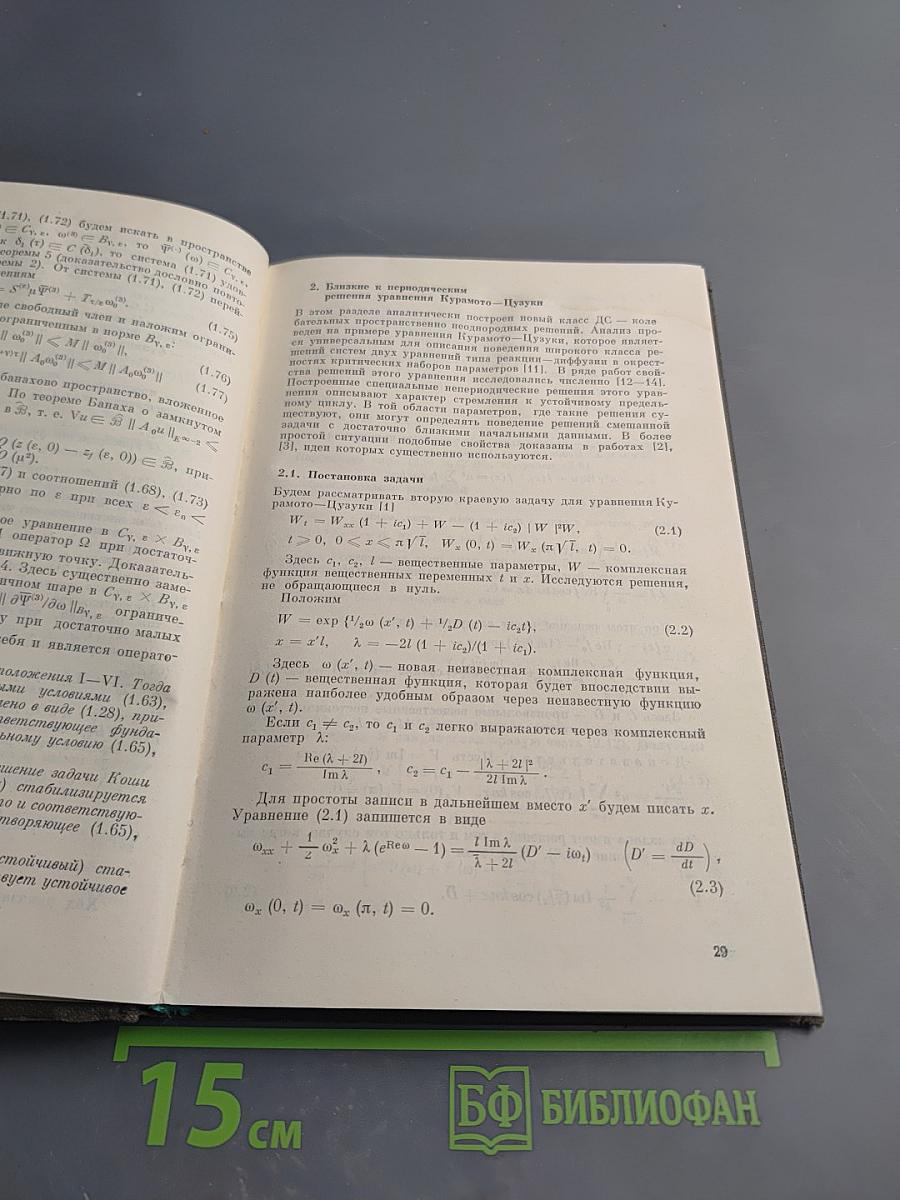 1.71), (1.72) будем искать в пространстве
∈ C_γ, ε, ω⁽³⁾ ∈ B_γ, ε, то Ψ̄⁽·⁾ (ω) ∈ C_γ, ε,
к δ₁ (τ) ∈ C (δ̄₁), то система (1.71) удов-
оремы 5 (доказательство дословно повто-
емы 2). От системы (1.71), (1.72) перей-
ениям
(1.75)
ые свободный член и наложим ограни-
ограниченным в норме B_γ, ε:
‖ ω₀⁽³⁾ ‖ ⩽ M ‖ ω₀⁽³⁾ ‖,
(1.76)
‖ A₀ω₀⁽³⁾ ‖ ⩽ M ‖ A₀ω₀⁽³⁾ ‖
(1.77)
банахово пространство, вложенное
По теореме Банаха о замкнутом
в ℬ̂, т. е. ∀u ∈ ℬ̂ ‖ A₀u ‖
Q (z (ε, 0) − z_f (ε, 0)) ∈ ℬ̂, при-
O (μ²).
7) и соотношений (1.68), (1.73)
рно по ε при всех ε < ε₀ <
ое уравнение в C_γ, ε × B_γ, ε
оператор Ω при достаточ-
вижную точку. Доказатель-
4. Здесь существенно заме-
ичном шаре в C_γ, ε × B_γ, ε
‖ ∂Ψ̄⁽³⁾/∂ω ‖B_γ, ε ограниче-
у при достаточно малых
себя и является операто-
положения I—VI. Тогда
ыми условиями (1.63),
лено в виде (1.28), при-
тветствующее фунда-
льному условию (1.65),
шение задачи Коши
) стабилизируется
то и соответствую-
творяющее (1.65),
стойчивый) ста-
вует устойчивое
2. Близкие к периодическим
решения уравнения Курамото—Цузуки
В этом разделе аналитически построен новый класс ДС — коле
бательных пространственно неоднородных решений. Анализ про-
веден на примере уравнения Курамото—Цузуки, которое являет-
ся универсальным для описания поведения широкого класса ре-
шений систем двух уравнений типа реакции—диффузии в окрест-
ностях критических наборов параметров [11]. В ряде работ свой-
ства решений этого уравнения исследовались численно [12—14].
Построенные специальные непериодические решения этого урав-
нения описывают характер стремления к устойчивому предель-
ному циклу. В той области параметров, где такие решения су-
ществуют, они могут определять поведение решений смешанной
задачи с достаточно близкими начальными данными. В более
простой ситуации подобные свойства доказаны в работах [2],
[3], идеи которых существенно используются.
2.1. Постановка задачи
Будем рассматривать вторую краевую задачу для уравнения Ку-
рамото—Цузуки [1]
Wₜ = Wₓₓ (1 + ic₁) + W − (1 + ic₂) | W |²W, (2.1)
t ⩾ 0, 0 ⩽ x ⩽ π√l, Wₓ (0, t) = Wₓ (π√l, t) = 0.
Здесь c₁, c₂, l — вещественные параметры, W — комплексная
функция вещественных переменных t и x. Исследуются решения,
не обращающиеся в нуль.
Положим
W = exp {¹/₂ω (x′, t) + ¹/₂D (t) − ic₂t}, (2.2)
x = x′l, λ = −2l (1 + ic₂)/(1 + ic₁).
Здесь ω (x′, t) — новая неизвестная комплексная функция,
D (t) — вещественная функция, которая будет впоследствии вы-
ражена наиболее удобным образом через неизвестную функцию
ω (x′, t).
Если c₁ ≠ c₂, то c₁ и c₂ легко выражаются через комплексный
параметр λ:
c₁ = Re (λ + 2l) / Im λ , c₂ = c₁ − |λ + 2l|² / 2l Im λ .
Для простоты записи в дальнейшем вместо x′ будем писать x.
Уравнение (2.1) запишется в виде
ωₓₓ + 1/2 ωₓ² + λ (e^{Re ω} − 1) = l Im λ / λ̄ + 2l (D′ − iωₜ) (D′ = dD/dt),
(2.3)
ωₓ (0, t) = ωₓ (π, t) = 0.
29
15 см
БФ БИБЛИОФАН